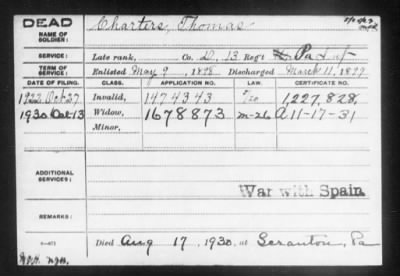 DEAD
NAME OF SOLDIER:
Charters, Thomas
SERVICE:
Late rank, Co. D, 13 Reg't Pa Inf
TERM OF SERVICE:
Enlisted May 9, 1898 Discharged March 11, 1899
DATE OF FILING. CLASS. APPLICATION NO. LAW. CERTIFICATE NO.
1922 Oct 27 Invalid, 1474343 1,227,828
1930 Oct 13 Widow, 1678873 A 11-17-31
Minor,
ADDITIONAL SERVICES:
War with Spain
REMARKS:
Died Aug 17, 1930, at Scranton, Pa